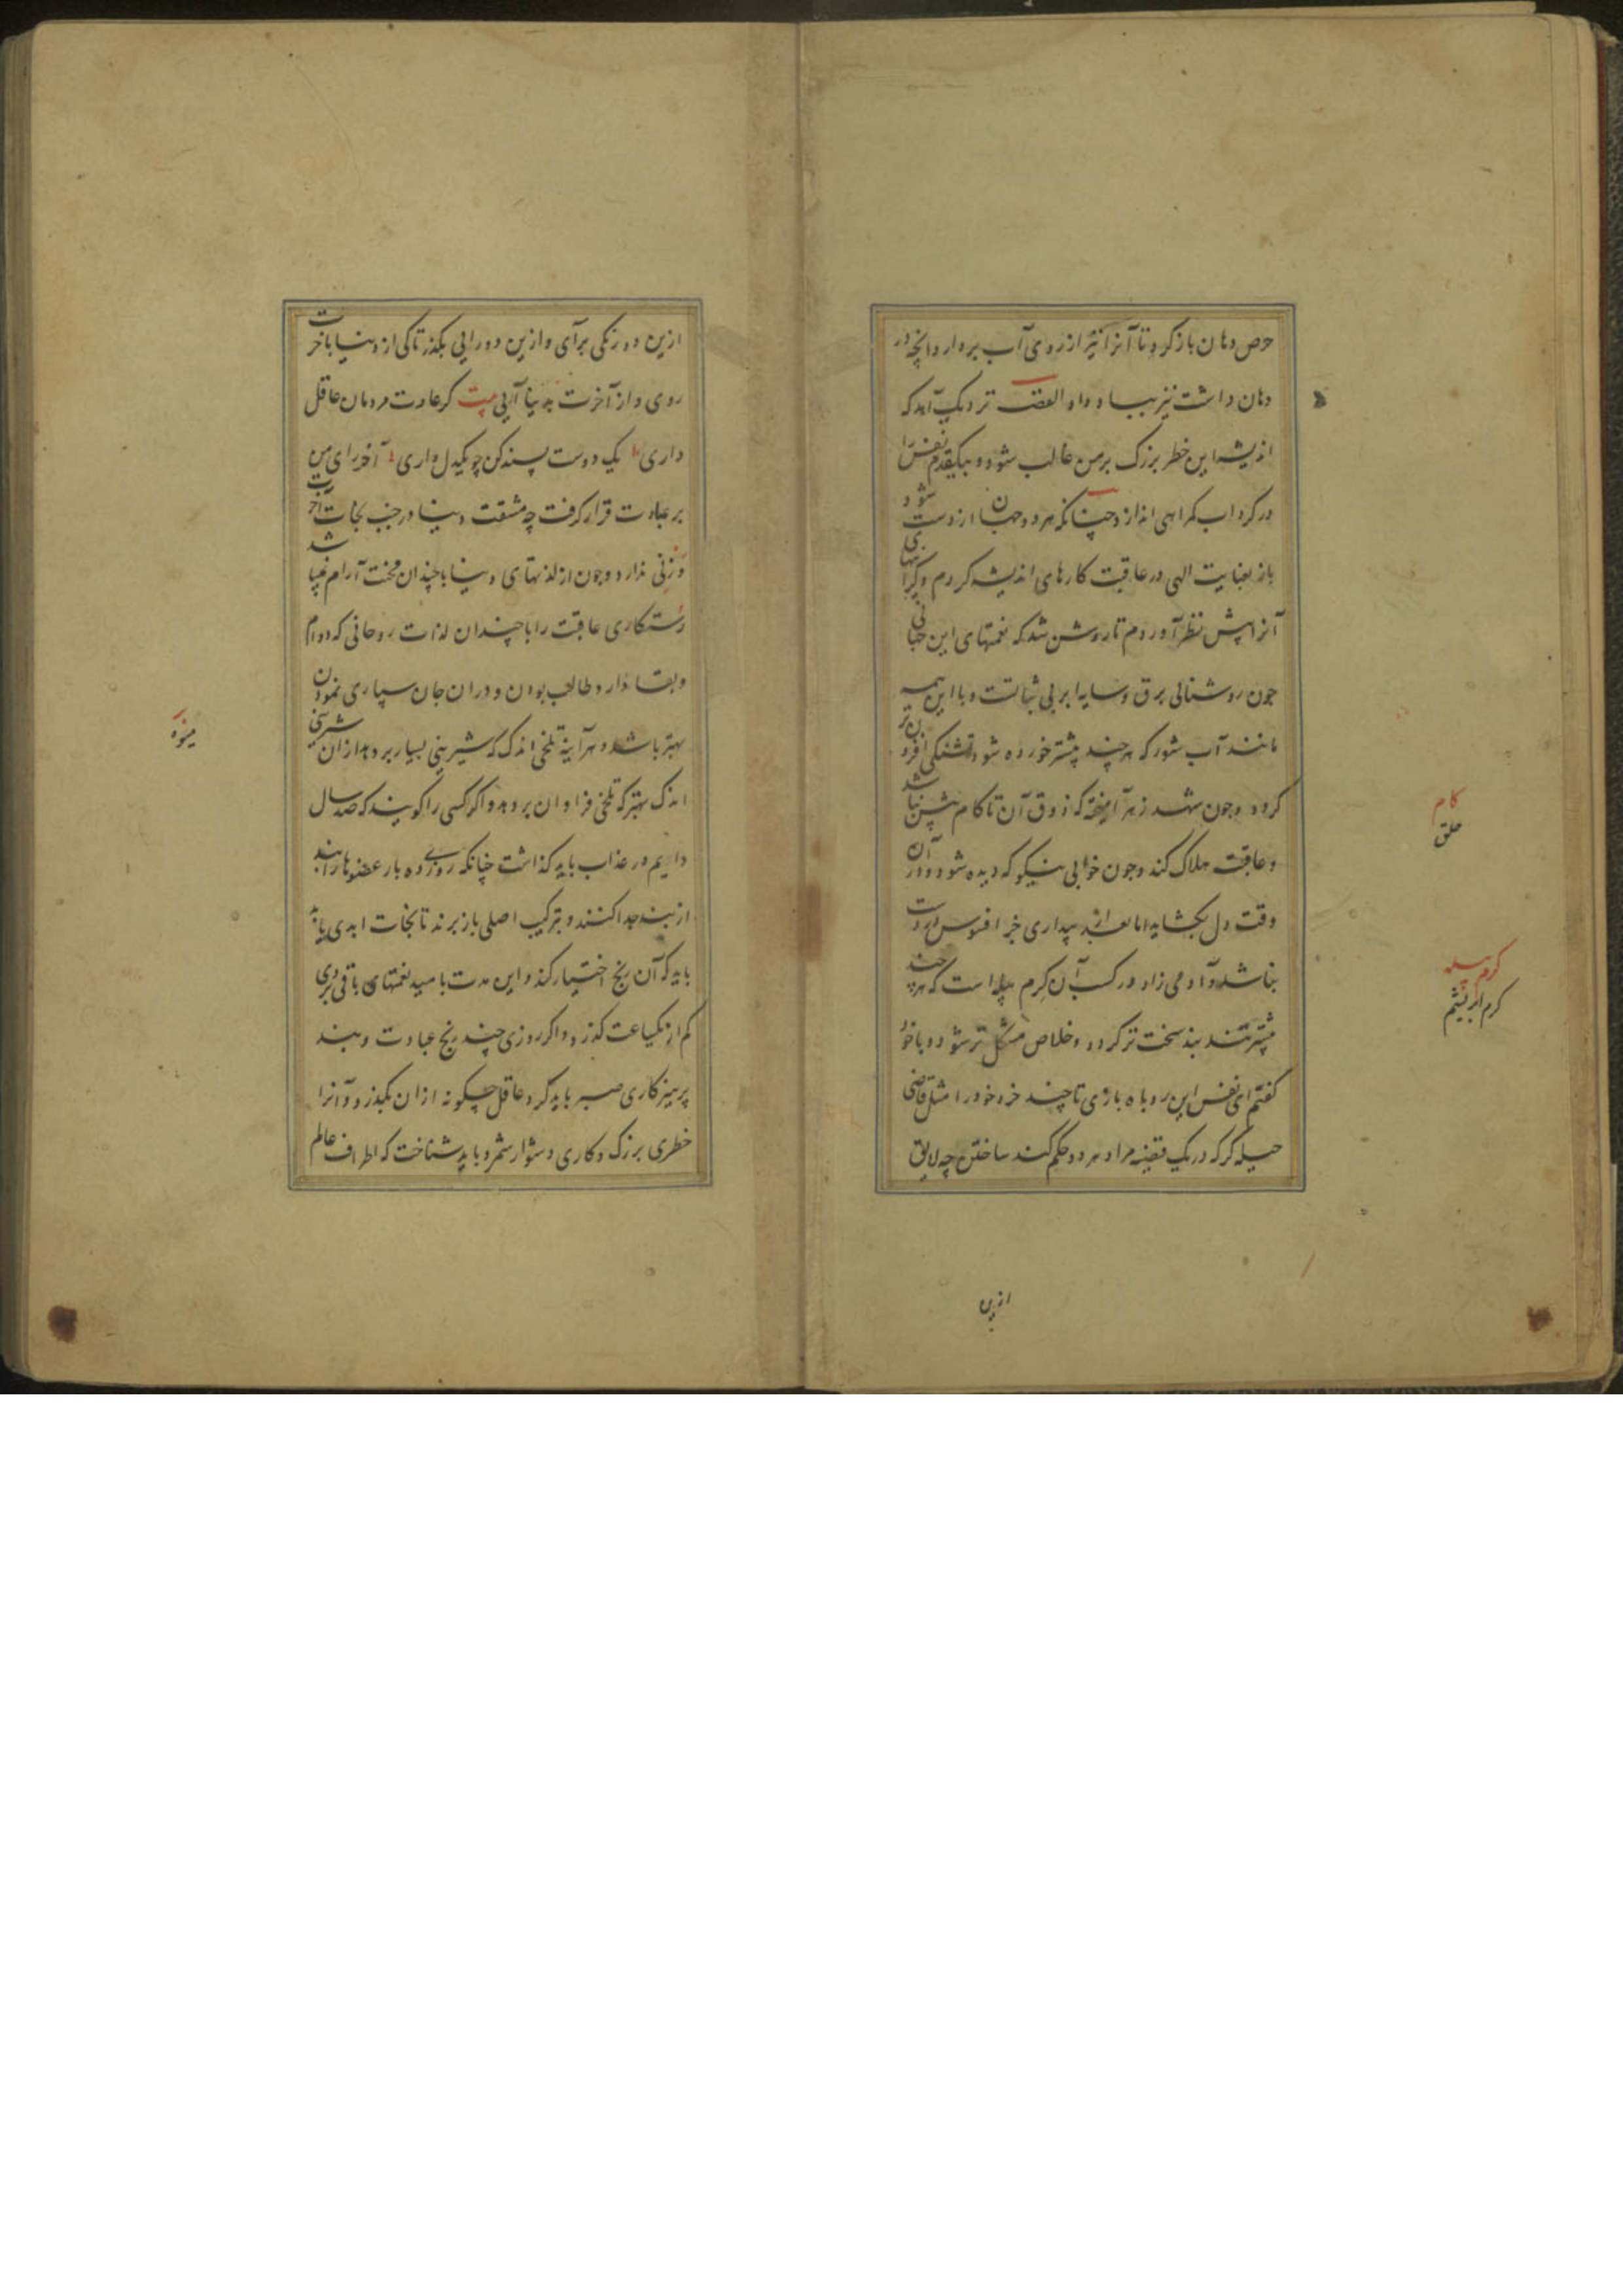 حرص دهان باز کرد تا آنرا نیز از روی آب بردارد و آنچه در
دهان داشت نیز بباد داد القصه نزدیک آمد که
اندیشه این خطر بزرک بر من غالب شود و بیکقدم نفس را
در کرداب کمراهی اندازد چنانکه هر دو جهان از دست شود
باز بعنایت الهی در عاقبت کارهای اندیشه کردم و
آنرا پیش نظر آوردم تا روشن شد که نعمتهای این جهانی
چون روشنائی برق و سایه ابر بی ثباتست و با این همه
مانند آب شور که هر چند بیشتر خورده شود تشنکی افزون تر
کردد و چون شهد زهر آمیخته که ذوق آن تا کام بیش نباشد
و عاقبت هلاک کند و چون خوابی نیکو که دیده شود و در آن
وقت دل بکشاید اما بعد از بیداری جز افسوس در دست
نباشد و آدمی زاد در کسب آن کرم پیله است که هر چند
بیشتر تند بند سخت تر کردد و خلاص مشکل تر شود و با خود
کفتم ای نفس این روباه بازی تا چند خرد خود را مثل قاضی
حیله کر که در یک قضیه مراد هر دو حکم کند ساختن چه لایق
کام
حلق
کرم پیله
کرم ابریشم
ازین
ازین دو رنکی برآی و ازین دو رایی بکذر تا کی از دنیا بآخرت
روی و از آخرت بدنیا آیی بیت کر عادت مردمان عاقل
داری یک دوست پسند کن چو یکدل داری آخر رای من
بر عبادت قرار کرفت چه مشقت دنیا در جنب نجات آخرت
وزنی ندارد و چون از لذتهای دنیا با چندان محنت آرام نمیباشد
رستکاری عاقبت را با چندان لذات روحانی که دوام
و بقا دارد طالب بودن و در آن جان سپاری نمودن
بهتر باشد و هر آینه تلخی اندک که شیرینی بسیار بر دهد از آن شیرینی
اندک بهتر که تلخی فراوان بر دهد و اکر کسی را کویند که صد سال
دایم در عذاب باید کذاشت چنانکه روزی ده بار عضوها را بند
از بند جدا کنند و بترکیب اصلی باز برند تا نجات ابدی یابد
باید که آن رنج اختیار کند و این مدت بامید نعمتهای باقی بروی
کم از یکساعت کذرد و اکر روزی چند رنج عبادت و بند
پرهیزکاری صبر باید کرد عاقل چکونه از آن بکذرد و آنرا
خطری بزرک و کاری دشوار شمرد و باید شناخت که اطراف عالم
میوه